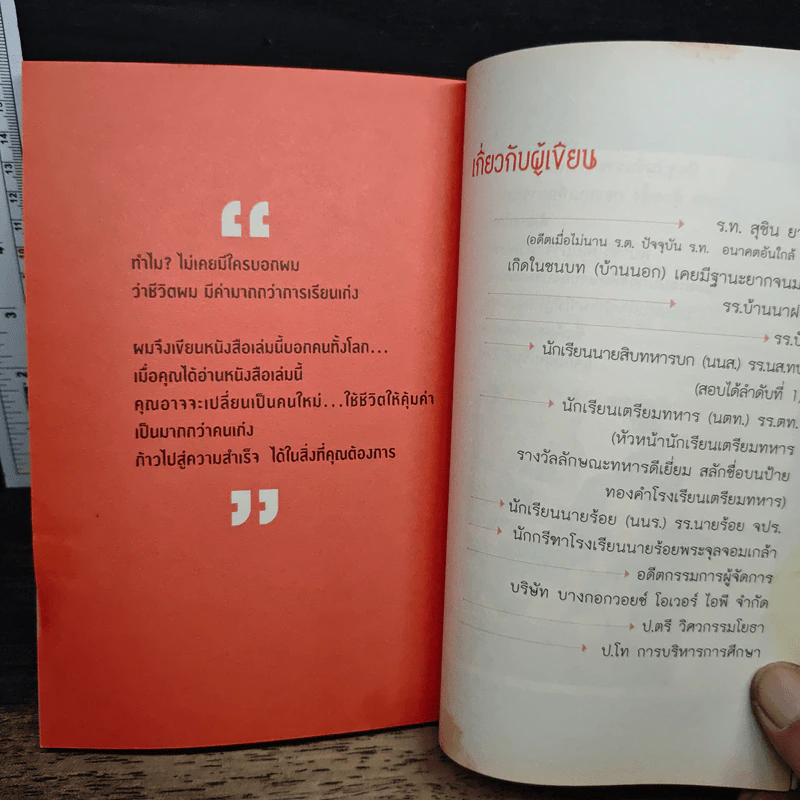 “
ทำไม? ไม่เคยมีใครบอกผม
ว่าชีวิตผม มีค่ามากกว่าการเรียนเก่ง
ผมจึงเขียนหนังสือเล่มนี้บอกคนทั้งโลก...
เมื่อคุณได้อ่านหนังสือเล่มนี้
คุณอาจจะเปลี่ยนเป็นคนใหม่...ใช้ชีวิตให้คุ้มค่า
เป็นมากกว่าคนเก่ง
ก้าวไปสู่ความสำเร็จ ได้ในสิ่งที่คุณต้องการ
”
เกี่ยวกับผู้เขียน
ร.ท. สุชิน
(อดีตเมื่อไม่นาน ร.ต. ปัจจุบัน ร.ท. อนาคตอันใกล้
เกิดในชนบท (บ้านนอก) เคยมีฐานะยากจนม
รร.บ้านนาฝ
รร.บ้
นักเรียนนายสิบทหารบก (นนส.) รร.นส.ทบ
(สอบได้ลำดับที่ 1)
นักเรียนเตรียมทหาร (นตท.) รร.ตท.
(หัวหน้านักเรียนเตรียมทหาร
รางวัลลักษณะทหารดีเยี่ยม สลักชื่อบนป้าย
ทองคำโรงเรียนเตรียมทหาร)
นักเรียนนายร้อย (นนร.) รร.นายร้อย จปร.
นักกรีฑาโรงเรียนนายร้อยพระจุลจอมเกล้า
อดีตกรรมการผู้จัดการ
บริษัท บางกอกวอยซ์ โอเวอร์ ไอพี จำกัด
ป.ตรี วิศวกรรมโยธา
ป.โท การบริหารการศึกษา
13
14